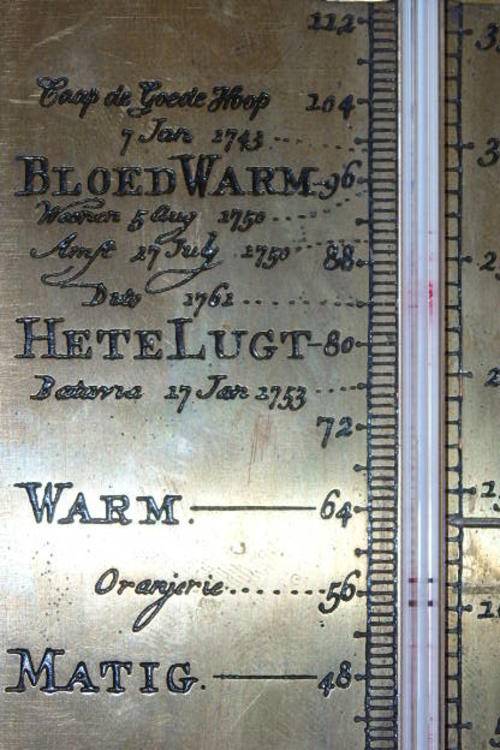 112
Caap de Goede Hoop 104
7 Jan 1743
BLOEDWARM 96
Weenen 5 Aug 1750
Amst 27 July 1750 88
Dito 1761
HETE LUGT 80
Batavia 17 Jan 1753
72
WARM. 64
Oranjerie 56
MATIG. 48